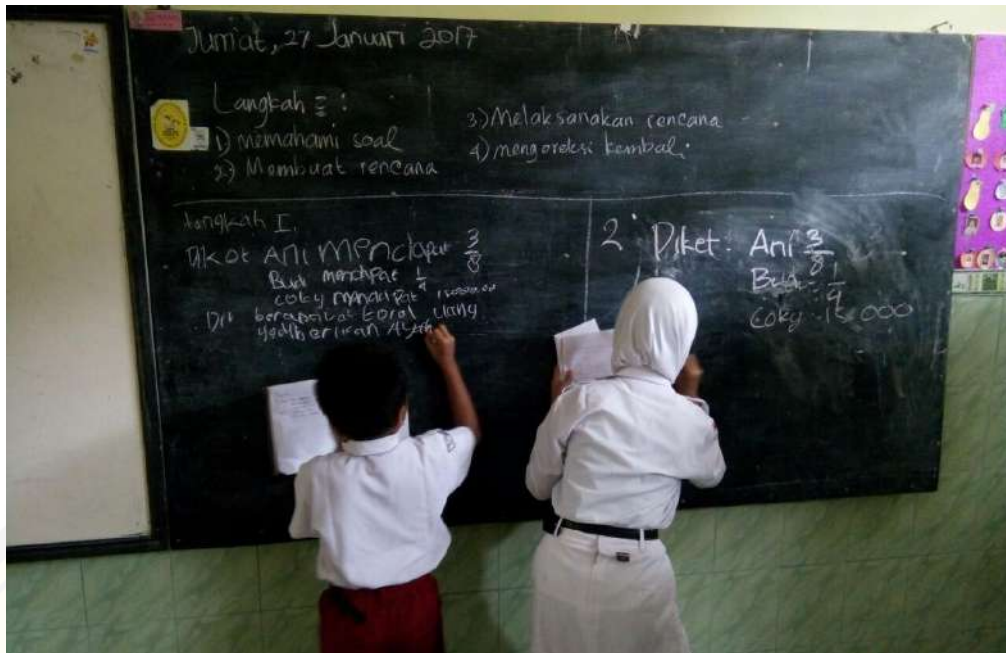 Jum'at, 27 Januari 2017
Langkah :
1) memahami soal
2) Membuat rencana
3) Melaksanakan rencana
4) mengoreksi kembali
Langkah I.
Diket Ani mendapat 3/8
Budi mendapat 1/4
coky mendapat
Dit berapakah total uang
yg diberikan Ayah
2 Diket : Ani 3/8
Budi : 1/4
Coky : 15.000